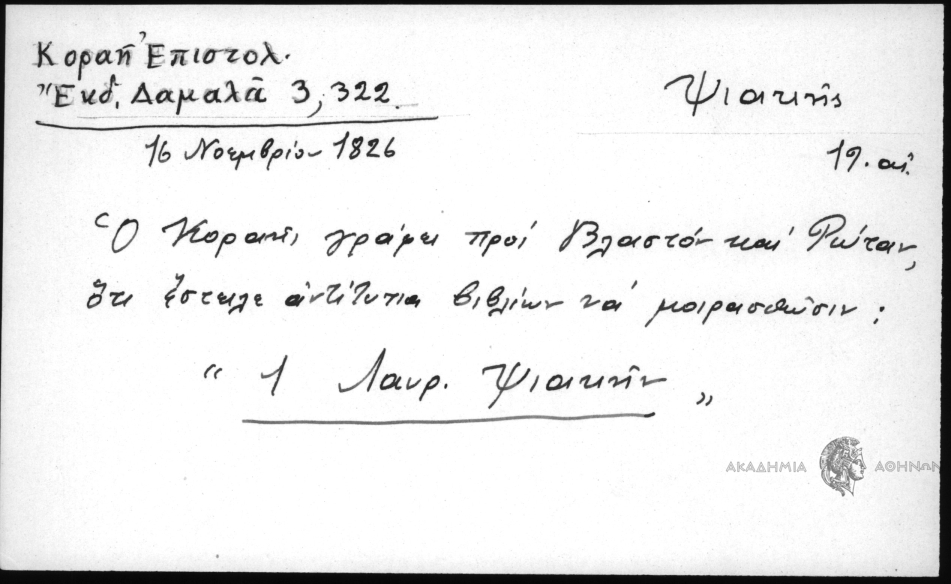 Κοραῆ Ἐπιστολ.
Ἔκδ. Δαμαλᾶ 3, 322.
Ψιακῆς
16 Νοεμβρίου 1826
19. αἰ.
Ὁ Κοραῆς γράφει πρὸς Βλαστὸν καὶ Ρώταν,
ὅτι ἔστειλε ἀντίτυπα βιβλίων νὰ μοιρασθῶσιν:
“ 1 Λαυρ. Ψιακὴν „
ΑΚΑΔΗΜΙΑ ΑΘΗΝΩΝ